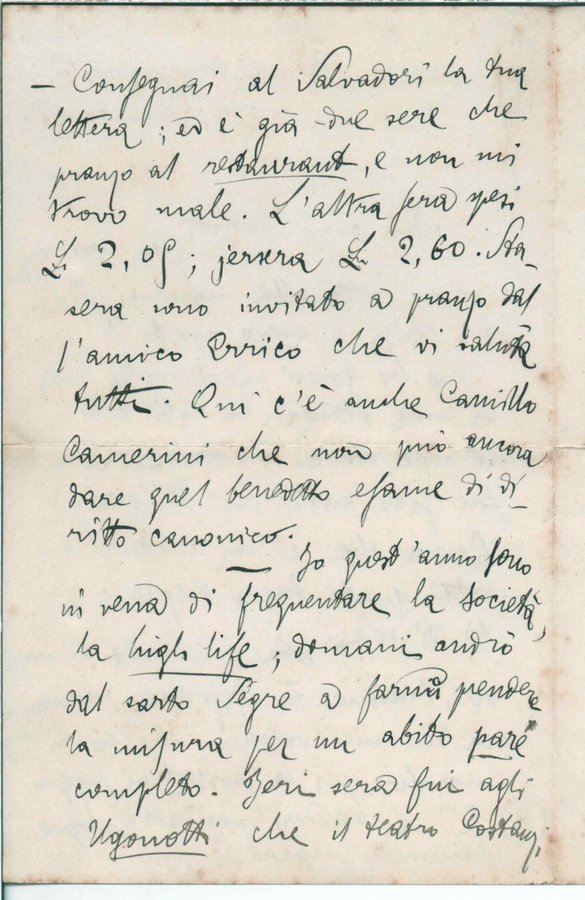 — Consegnai al Salvadori la tua
lettera; ed è già due sere che
pranzo al restaurant, e non mi
trovo male. L'altra sera spesi
L. 2,05; jersera L. 2,60. Sta-
sera sono invitato a pranzo dal
l'amico Errico che vi saluta
tutti. Qui c'è anche Camillo
Camerini che non può ancora
dare quel benedetto esame di di-
ritto canonico.
— Io quest'anno sono
in vena di frequentare la società,
la high life; domani andrò
dal sarto Segre a farmi prendere
la misura per un abito
completo. Jeri sera fui agli
Ugonotti che il teatro Costanzi